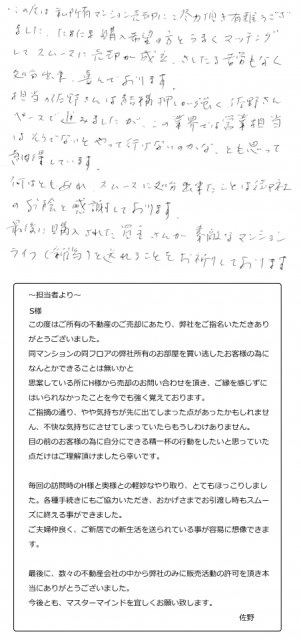 この度は私所有マンション売却にご尽力頂き有難うござい
ました。たまたま購入希望の方とうまくマッチング
してスムースに売却が成立、さしたる苦労もなく
処分出来、喜んでおります。
担当の佐野さんは結構押しが強く佐野さん
ペースで進みましたが、この業界では営業担当
はそうでないとやって行けないのかな、とも思って
しています。
何はともあれ、スムースに処分出来たことは御社
のお陰と感謝しております。
最後に購入された買主さんが素敵なマンション
ライフ()を送れることをお祈りしております
～担当者より～
S様
この度はご所有の不動産のご売却にあたり、弊社をご指名いただきあり
がとうございました。
同マンションの同フロアの弊社所有のお部屋を買い逃したお客様の為に
なんとかできることは無いかと
思案している所にH様から売却のお問い合わせを頂き、ご縁を感じずに
はいられなかったことを今でも強く覚えております。
ご指摘の通り、やや気持ちが先に出てしまった点があったかもしれませ
ん、不快な気持ちにさせてしまっていたらもうしわけありません。
目の前のお客様の為に自分にできる精一杯の行動をしたいと思っていた
点だけはご理解頂けましたら幸いです。
毎回の訪問時のH様と奥様との軽妙なやり取り、とてもほっこりしまし
た。各種手続きにもご協力いただき、おかげさまでお引渡し時もスムー
ズに終える事ができました。
ご夫婦仲良く、ご新居での新生活を送られている事が容易に想像できま
す。
最後に、数々の不動産会社の中から弊社のみに販売活動の許可を頂き本
当にありがとうございました。
今後とも、マスターマインドを宜しくお願い致します。
佐野